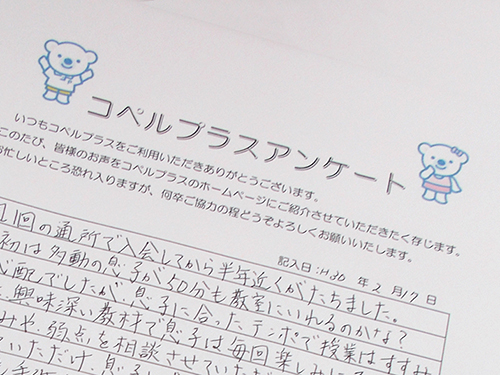 コペルプラスアンケート
いつもコペルプラスをご利用いただきありがとうございます。
このたび、皆様のお声をコペルプラスのホームページにご紹介させていただきたく存じます。
お忙しいところ恐れ入りますが、何卒ご協力の程どうぞよろしくお願いいたします。
記入日：H30 年 2 月 17 日
1回の通所で入会してから半年近くがたちました。
初は多動の息子が50分も教室にいれるのかな?
配でしたが、息子に合ったテンポで授業はすすみ
興味深い教材で息子は毎回楽しみに
みや、弱点を相談させていただ
いただけ、息子